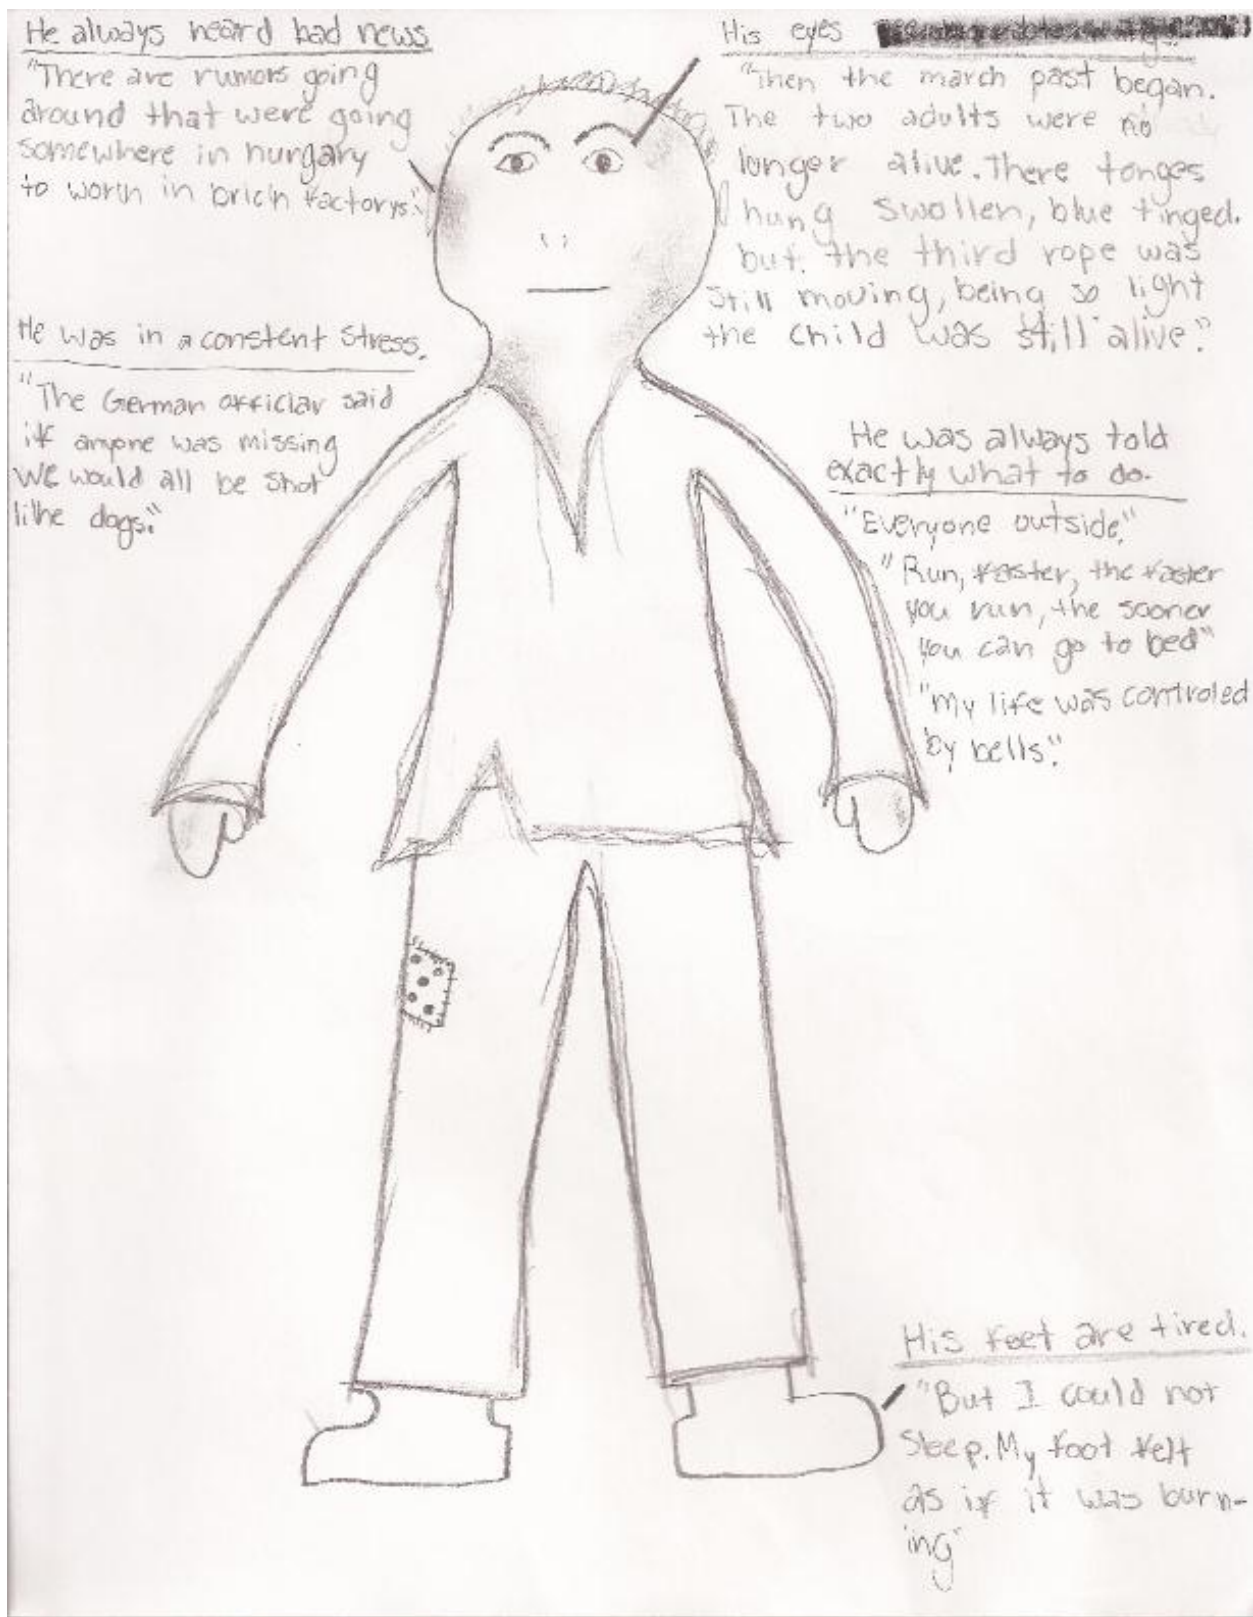 He always heard bad news
"There are rumors going
around that were going
somewhere in hungary
to work in brick factorys."
He was in a constent stress.
"The German officiar said
if anyone was missing
we would all be shot
like dogs."
His eyes
"Then the march past began.
The two adults were no
longer alive. There tonges
hung swollen, blue tinged.
but. the third rope was
still moving, being so light
the child was still alive."
He was always told
exactly what to do.
"Everyone outside,"
"Run, faster, the faster
you run, the sooner
you can go to bed"
"my life was controled
by bells."
His feet are tired.
"But I could not
sleep. My foot felt
as if it was burn-
ing"